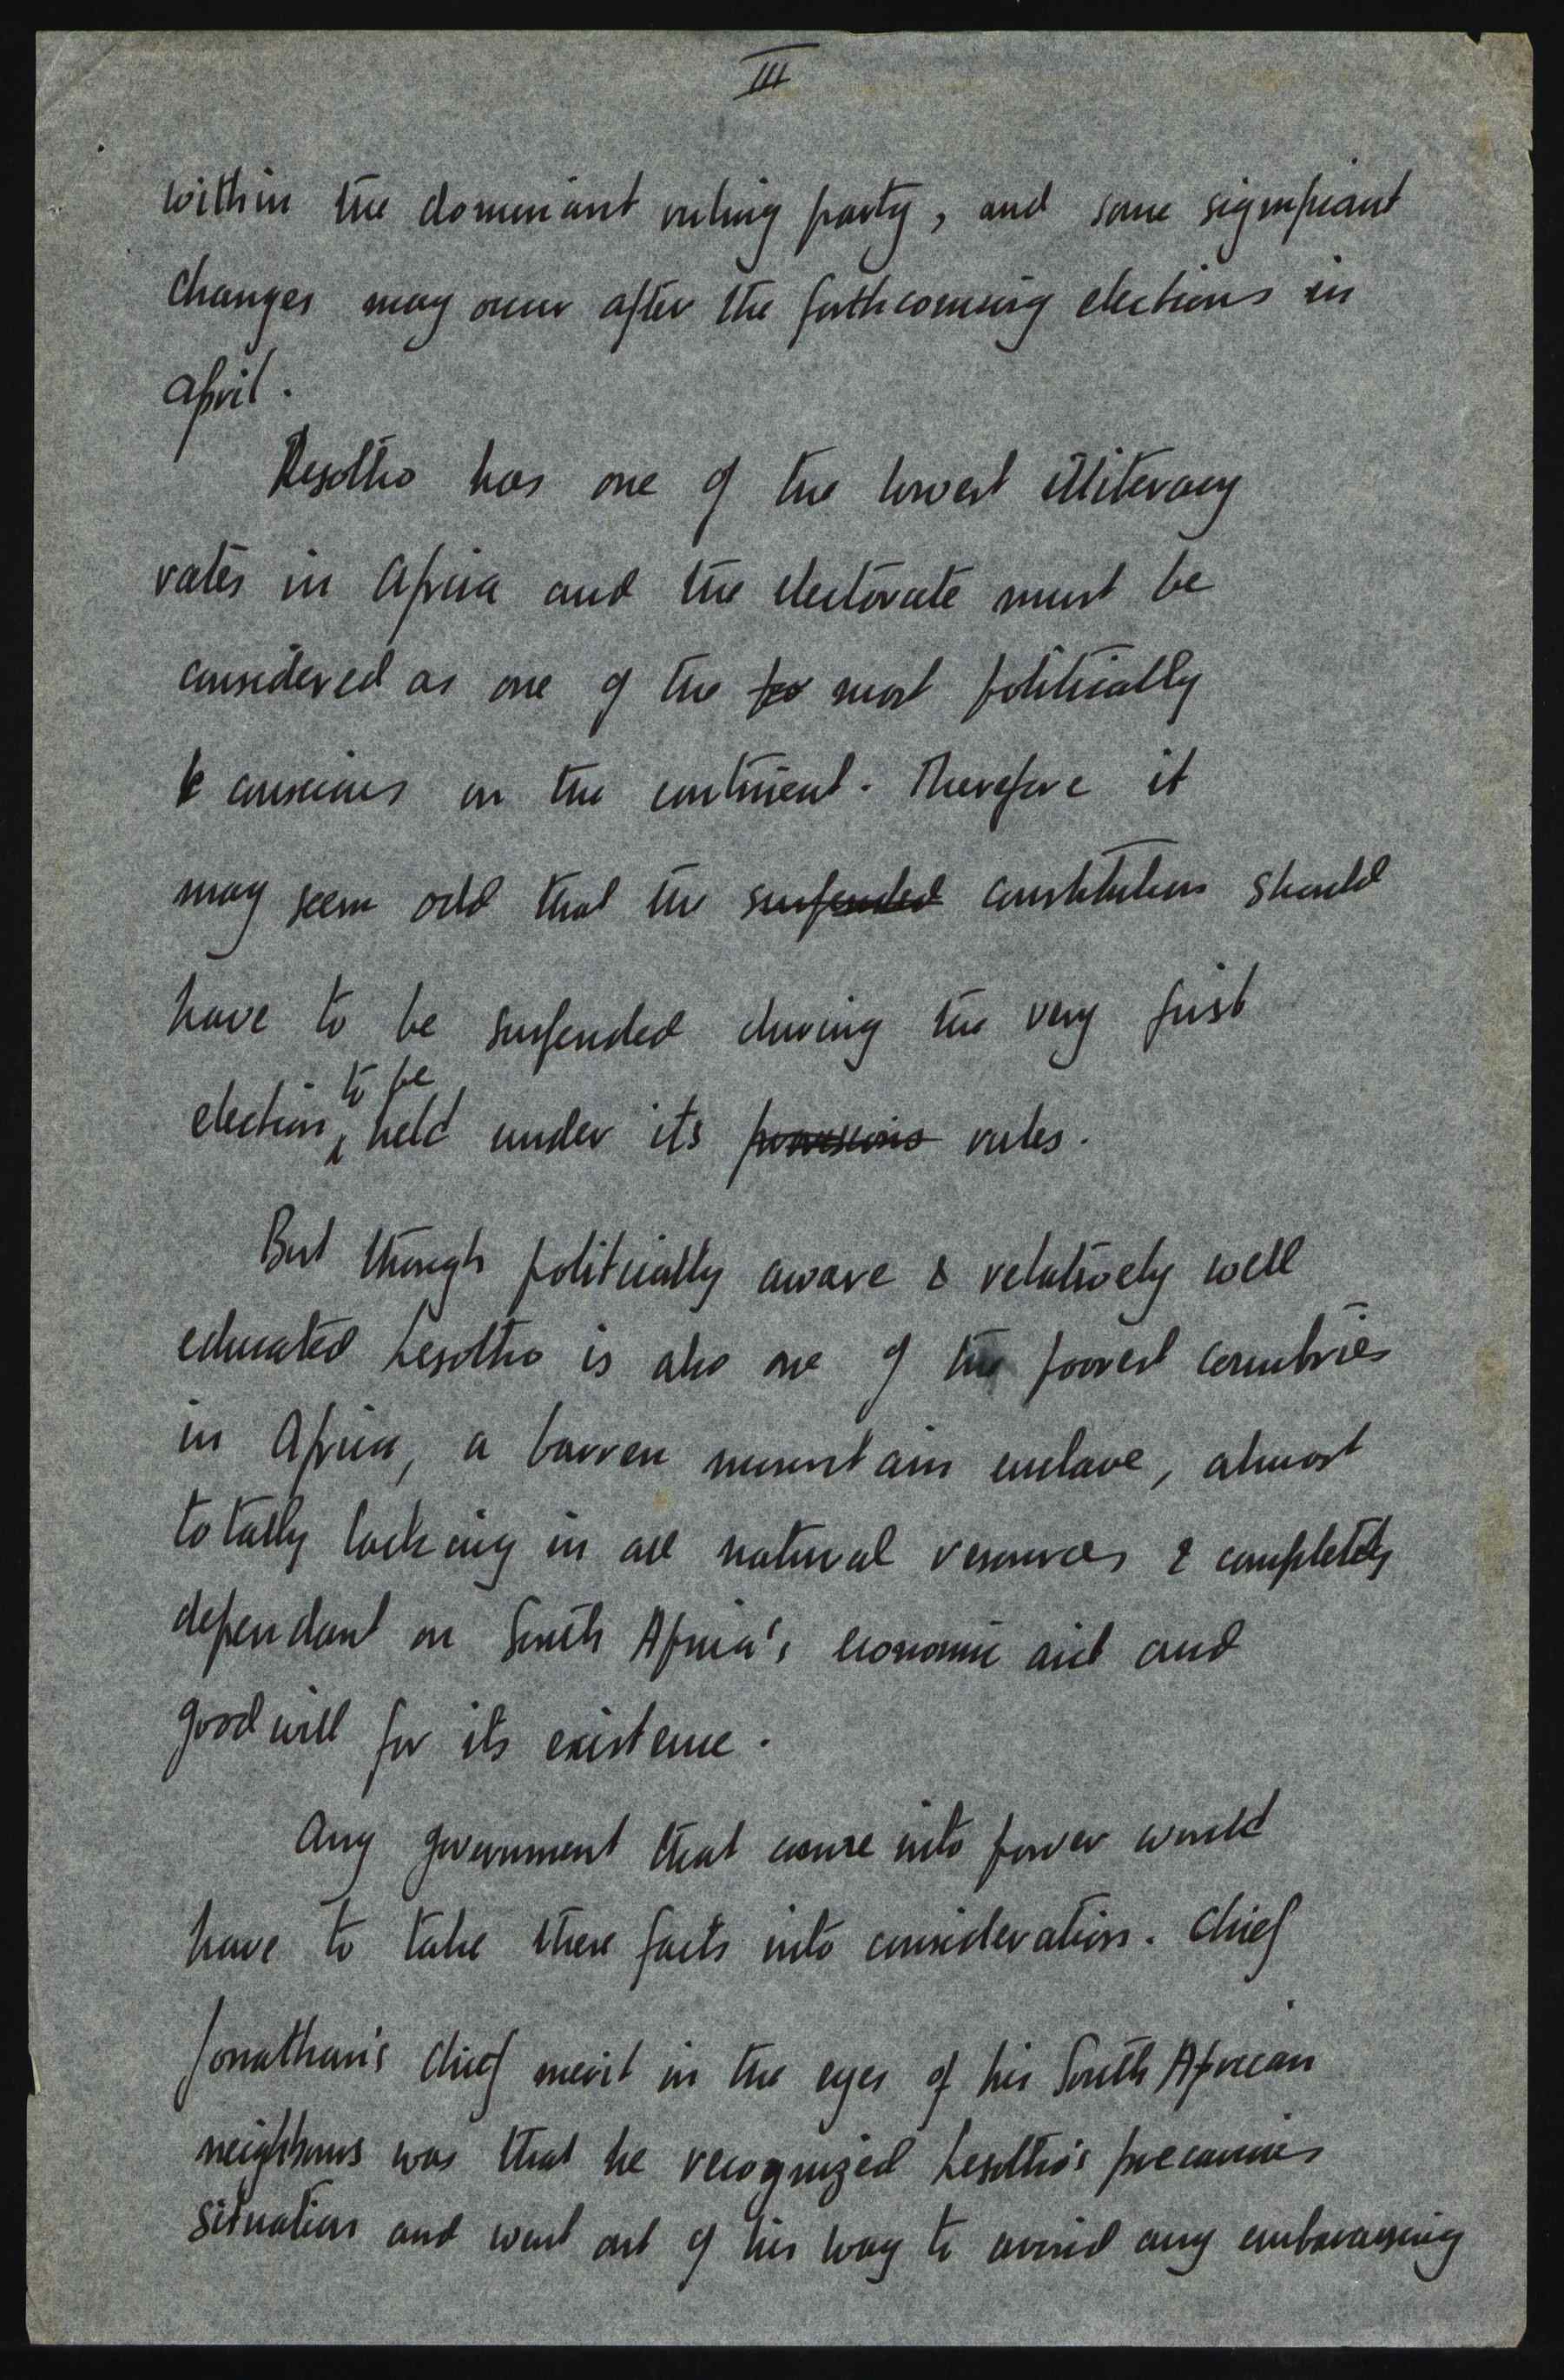 III
within the dominant ruling party, and some significant
changes may occur after the forthcoming elections in
April.
Lesotho has one of the lowest illiteracy
rates in Africa and the electorate must be
considered as one of the po most politically
conscious on the continent. Therefore it
may seem odd that the suspended constitution should
have to be suspended during the very first
to be
election held under its provisions rules.
But though politically aware & relatively well
educated Lesotho is also one of the poorest countries
in Africa, a barren mountain enclave, almost
totally lacking in all natural resources & completely
dependant on South Africa's economic aid and
good will for its existence.
Any government that came into power would
have to take these facts into consideration. Chief
Jonathan's chief merit in the eyes of his South African
neighbours was that he recognized Lesotho's precarious
situation and went out of his way to avoid any embarassing